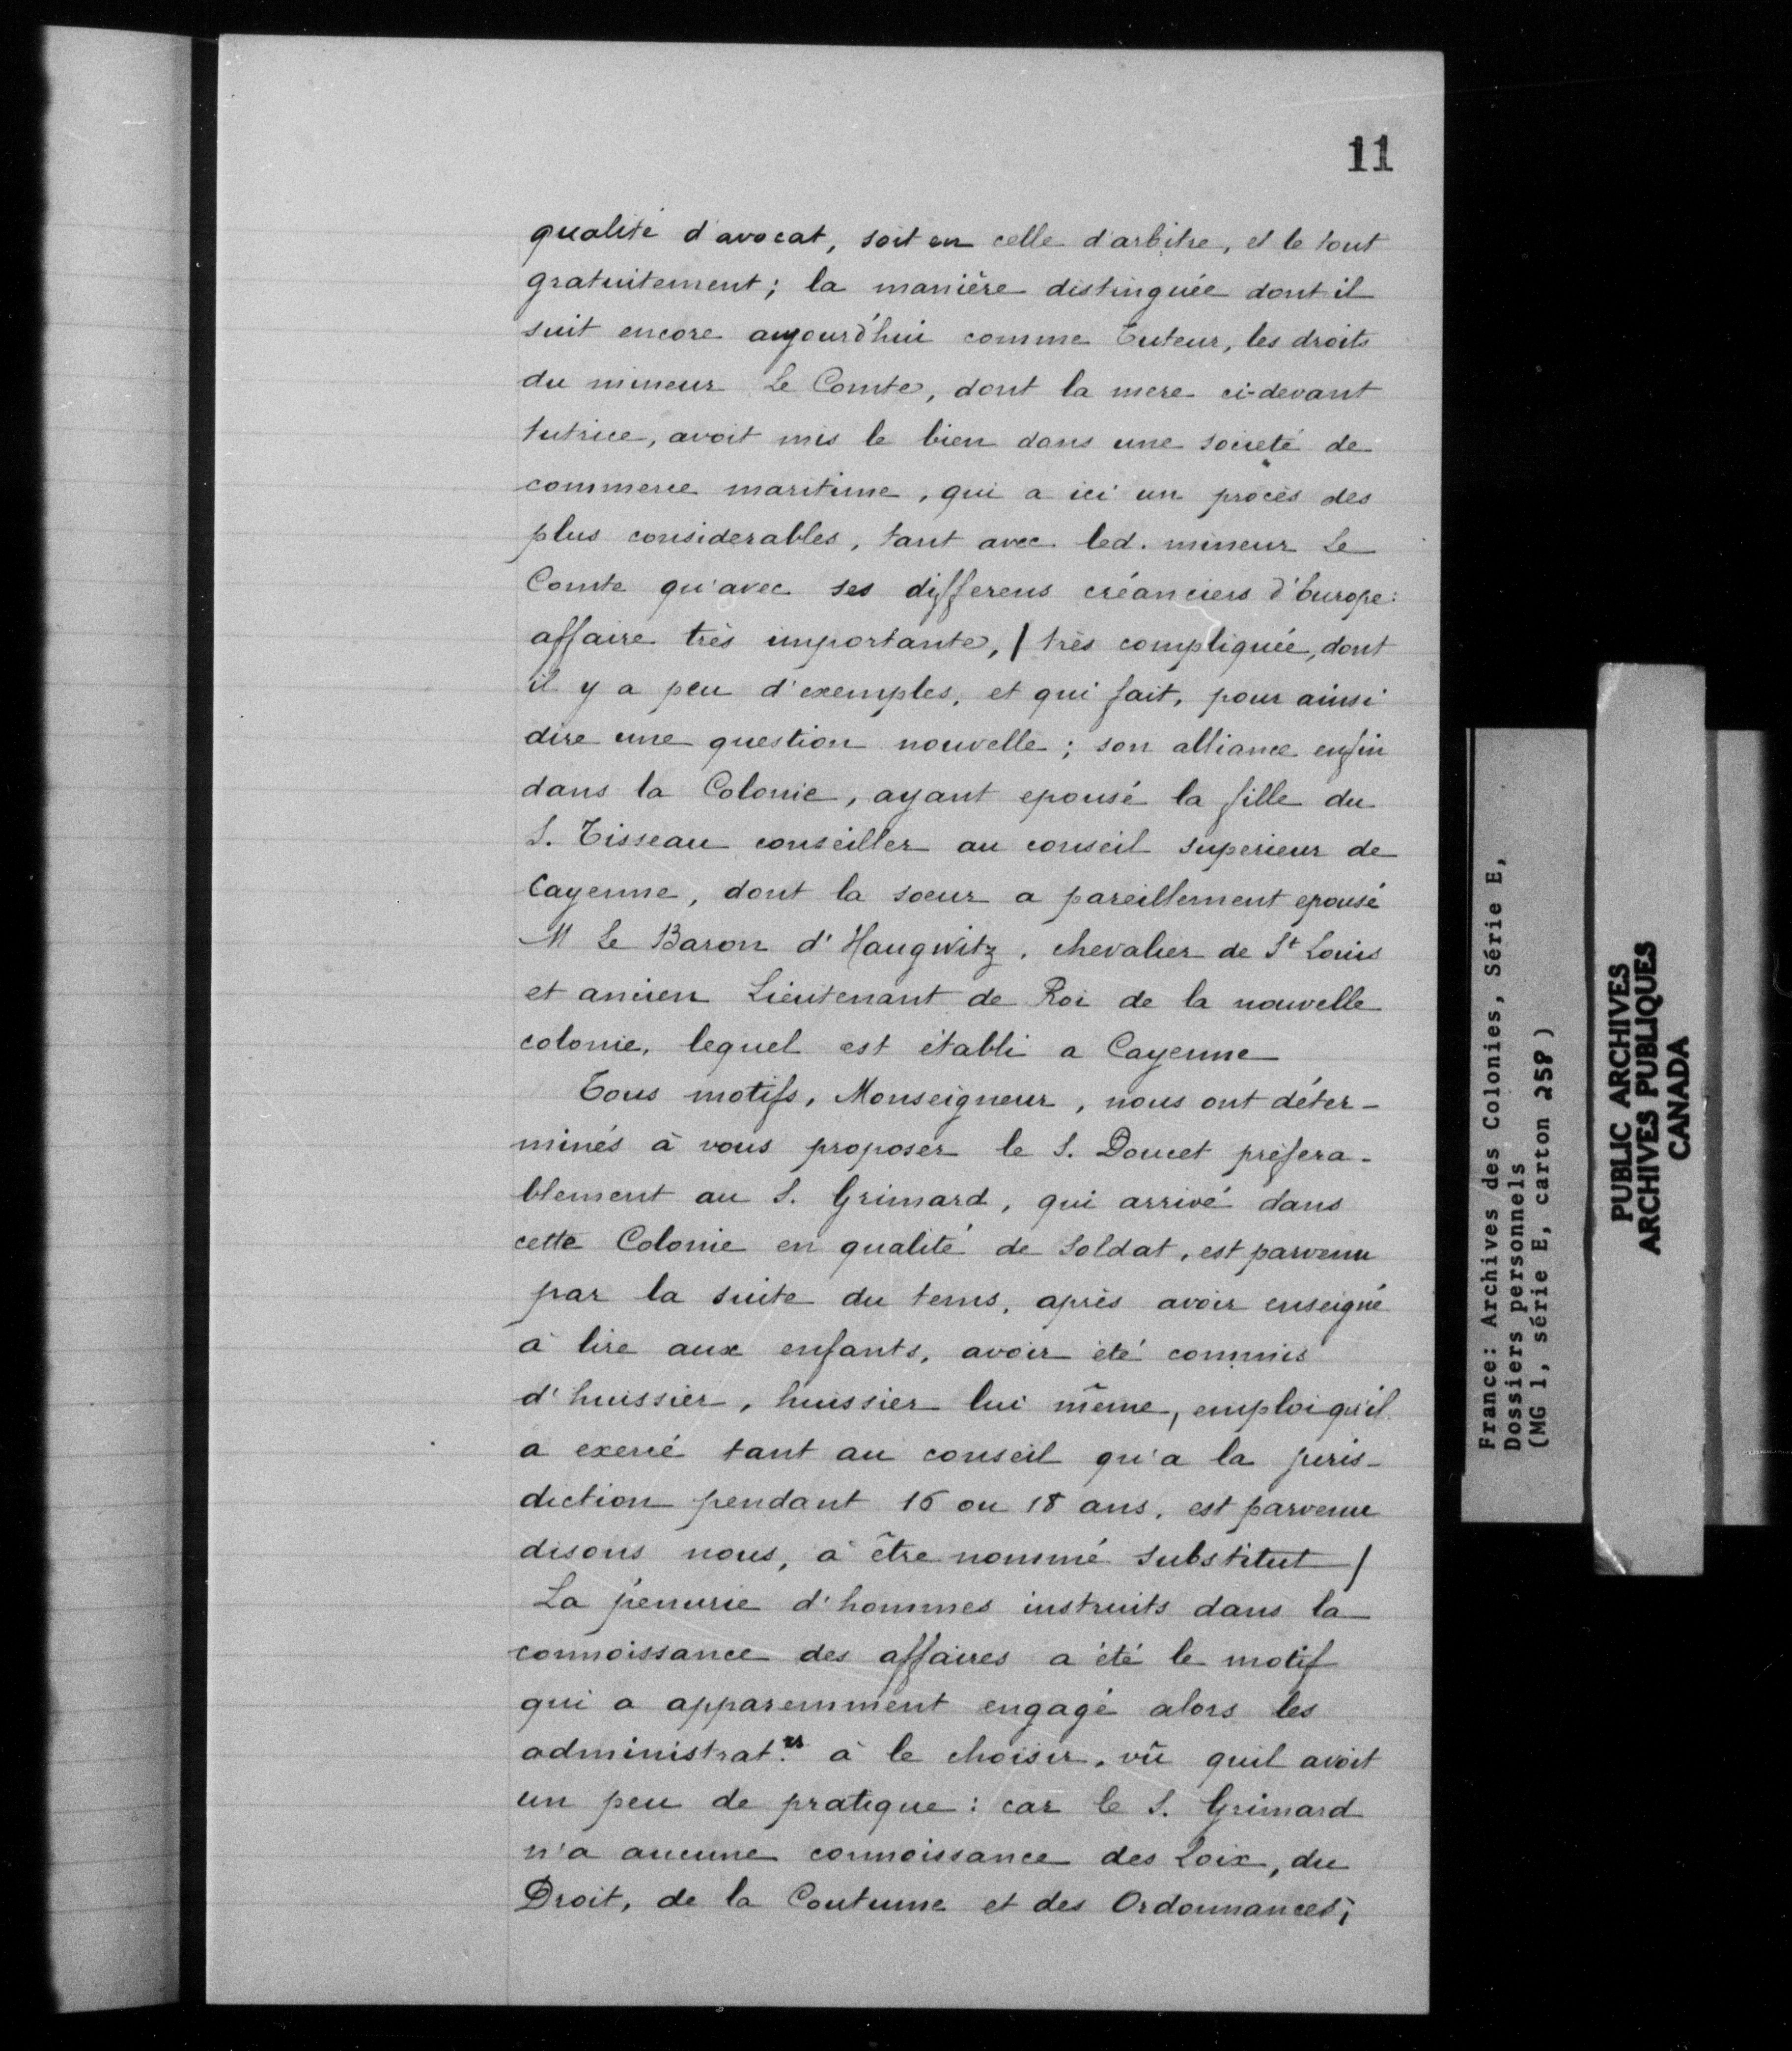 11
qualité d'avocat, soit en celle d'arbitre, et le tout
gratuitement; la manière distinguée dont il
suit encore aujourd'hui comme Tuteur, les droits
du mineur Le Comte, dont la mere ci-devant
tutrice, avoit mis le bien dans une societé de
commerce maritime, qui a ici un procès des
plus considerables, tant avec led. mineur Le
Comte qu'avec ses differens créanciers d'Europe:
affaire très importante, / très compliquée, dont
il y a peu d'exemples, et qui fait, pour ainsi
dire une question nouvelle; son alliance enfin
dans la Colonie, ayant epousé la fille du
S. Tisseau conseiller au conseil superieur de
Cayenne, dont la soeur a pareillement epousé
M Le Baron d'Haugwitz, chevalier de St Louis
et ancien Lieutenant de Roi de la nouvelle
colonie, lequel est établi a Cayenne
Tous motifs, Monseigneur, nous ont déter-
minés à vous proposer le S. Doucet préfera-
blement au S. Grimard, qui arrivé dans
cette Colonie en qualité de soldat, est parvenu
par la suite du tems, après avoir enseigné
à lire aux enfants, avoir été commis
d'huissier, huissier lui même, emploi qu'il
a exercé tant au conseil qu'a la juris-
diction pendant 16 ou 18 ans, est parvenu
disons nous, à être nommé substitut /
La pénurie d'hommes instruits dans la
connoissance des affaires a été le motif
qui a apparemment engagé alors les
administrat.rs à le choisir, vû quil avoit
un peu de pratique: car le S. Grimard
n'a aucune connoissance des Loix, du
Droit, de la Coutume et des Ordonnances;
France: Archives des Colonies, Série E,
Dossiers personnels
(MG 1, série E, carton 258)
PUBLIC ARCHIVES
ARCHIVES PUBLIQUES
CANADA